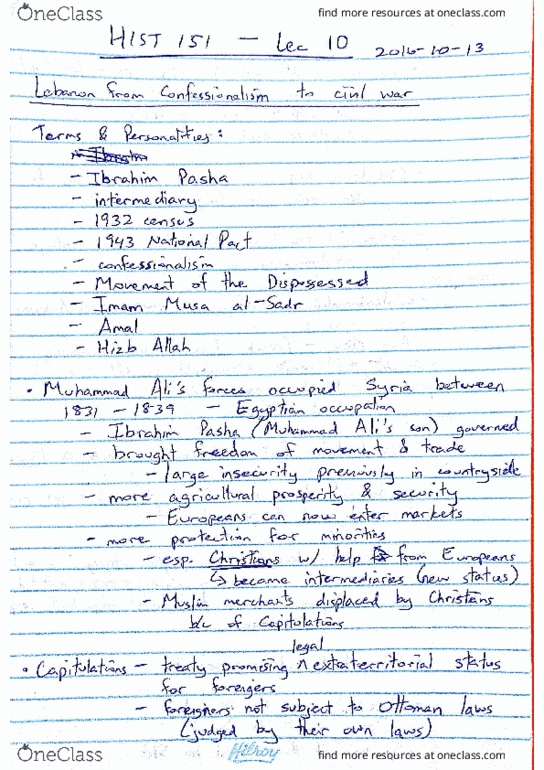 OneClass
find more resources at oneclass.com
HIST 151 - Lec 10 2016-10-13
Lebanon from Confessionalism to civil war
Terms & Personalities:
- Ibrahim Pasha
- intermediary
- 1932 census
- 1943 National Pact
- confessionalism
- Movement of the Dispossessed
- Imam Musa al-Sadr
- Amal
- Hizb Allah
• Muhammad Ali's forces occupied Syria between
1831 - 1839 - Egyptian occupation
- Ibrahim Pasha (Muhammad Ali's son) governed
- brought freedom of movement & trade
- large insecurity previously in countryside
- more agricultural prosperity & security
- Europeans can now enter markets
- more protection for minorities
- esp. Christians w/ help from Europeans
↳ became intermediaries (new status)
- Muslim merchants displaced by Christians
b/c of Capitulations
legal
• Capitulations - treaty promising ^ extraterritorial status
for foreigers
- foreigners not subject to Ottoman laws
(judged by their own laws)
Hilroy
OneClass
find more resources at oneclass.com